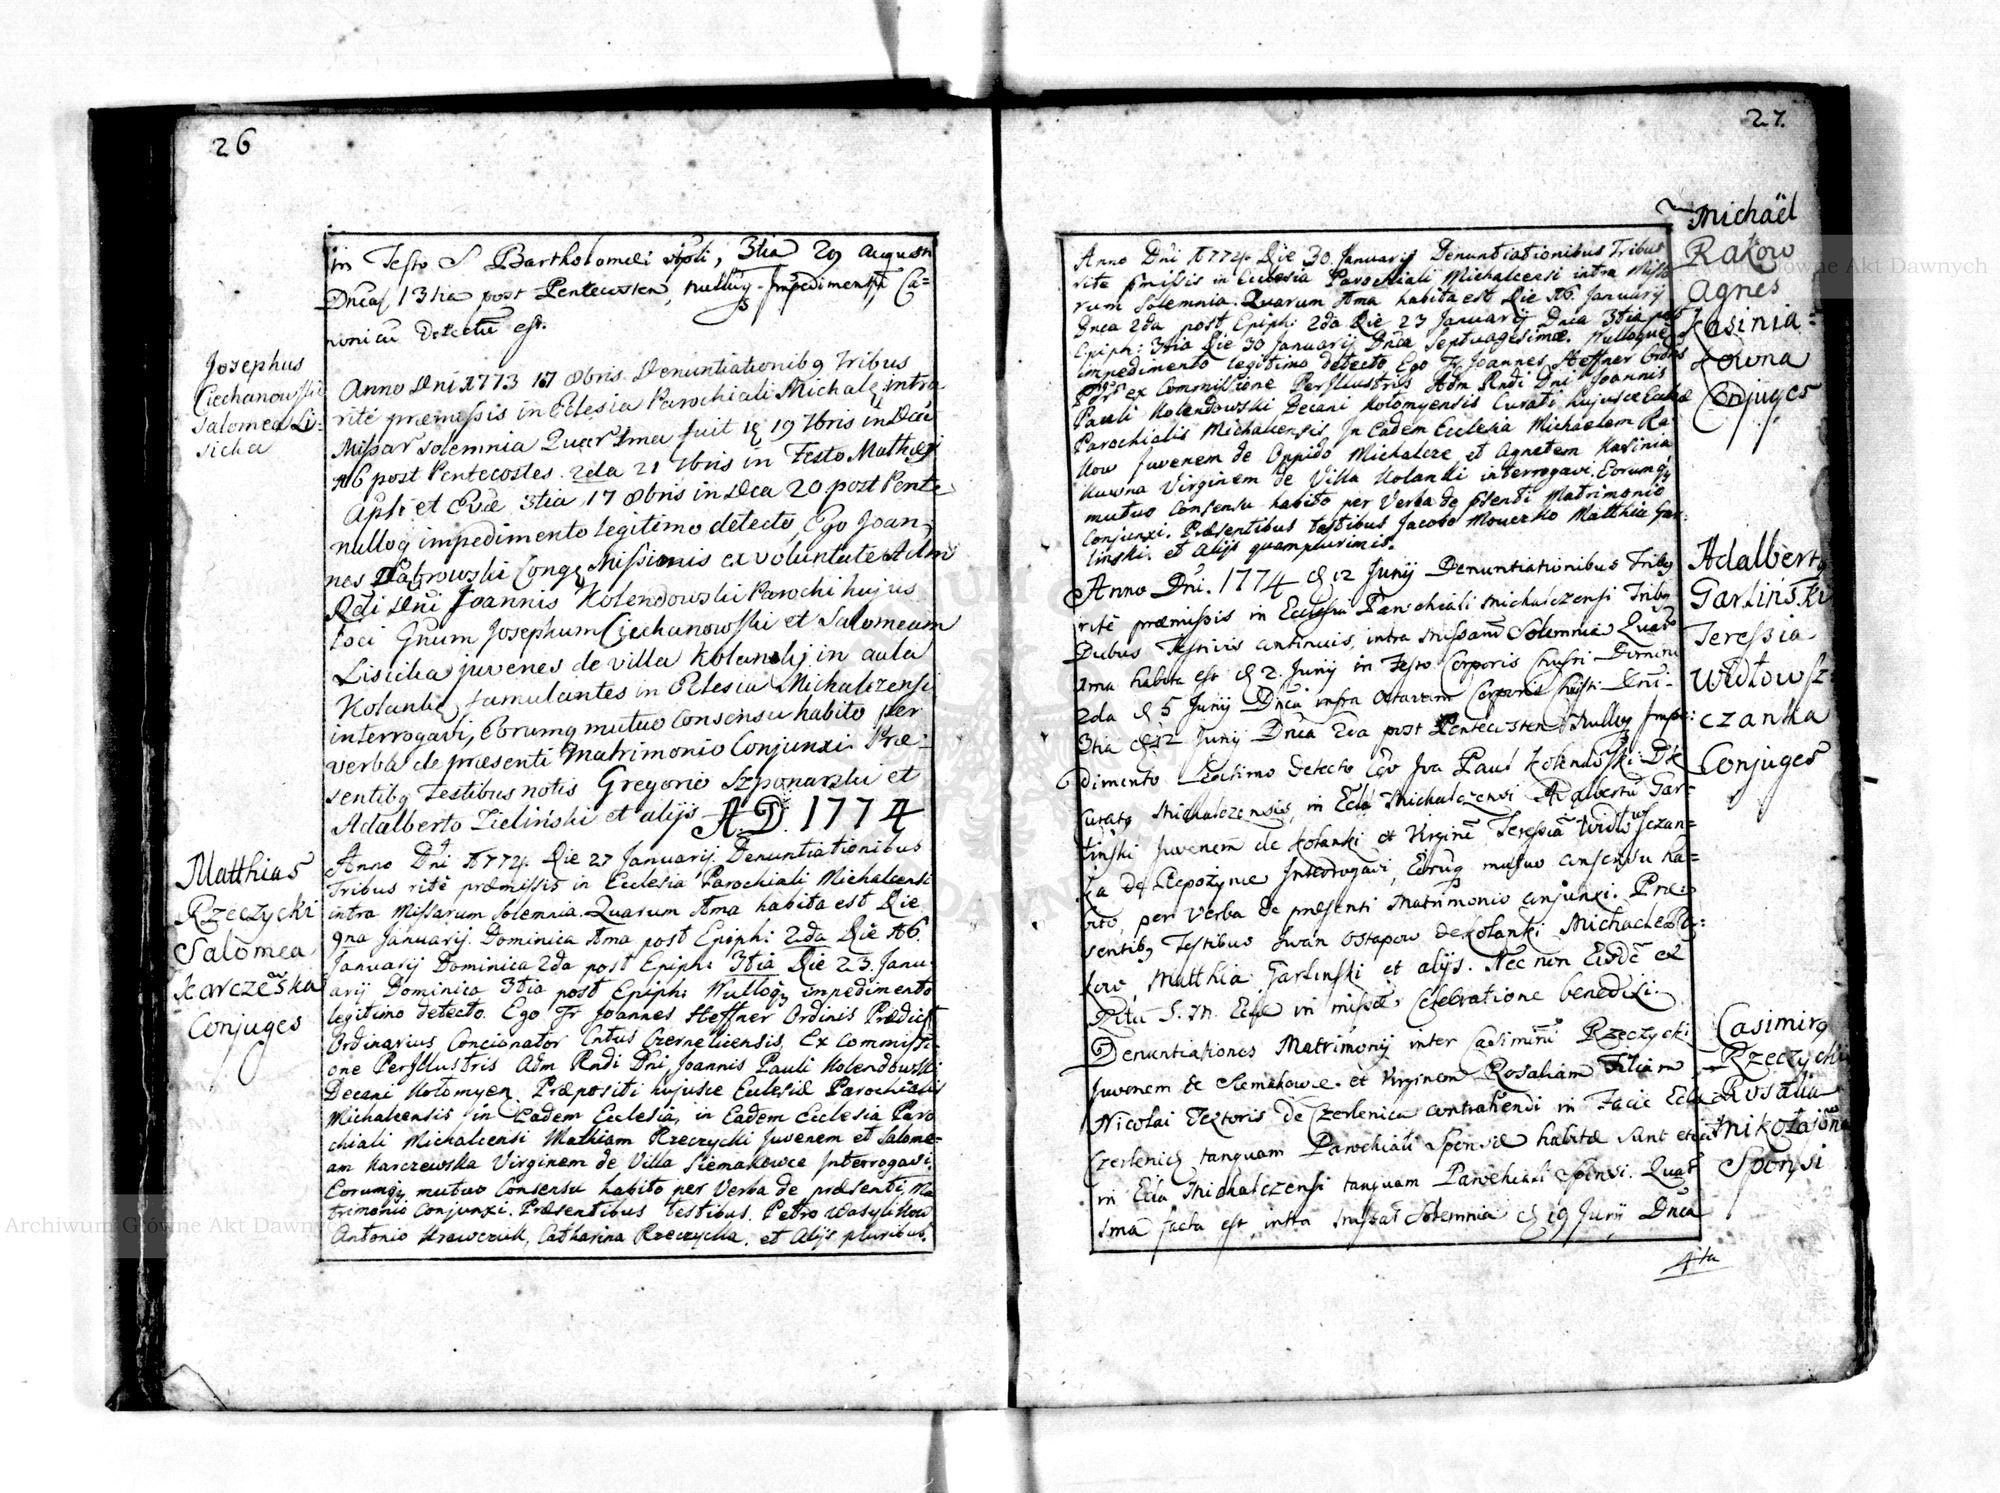 26
in Festo S. Bartholomei Apli, 3tia 29 Augusti
Dnca 13tia post Pentecosten, nullum Impedimentum Ca=
nonicum detectum est.
Josephus
Ciechanowski
Salomea Li=
sicka
Anno Dni 1773 17 8bris Denuntiationibq tribus
ritè præmissis in Eclesia Parochiali Michalc intra
Missar solemnia Quar 1ma fuit 19 7bris in Dca
16 post Pentecostes. 2da 21 7bris in Festo Mathei
Apli et Evæ 3tia 17 8bris in Dca 20 post Pente
nulloq impedimento legitimo detecto, Ego Joan,
nes Dąbrowski Cong Missionis ex voluntate Adm
Rdi Dni Joannis Kolendowski Parochi hujus
loci Gnum Josephum Ciechanowski et Salomeam
Lisicka juvenes de villa Kolanki in aula
Kolanki famulantes in Eclesia Michalczensi
interrogavi, Eorumq mutuo consensu habito per
verba de præsenti Matrimonio Conjunxi. Præ=
sentibq Testibus notis Gregorio Szponarski et
Adalberto Zieliński et alijs A.D. 1774
Matthias
Rzeczycki
Salomea
Karczeska
Conjuges
Anno Dni 1774. Die 27 Januarij. Denuntiationibus
Tribus ritè præmissis in Ecclesia Parochiali Michalcensi
intra Missarum solemnia. Quarum 1ma habita est Die
9na Januarij. Dominica 1ma post Epiph: 2da Die 16.
Januarij Dominica 2da post Epiph: 3tia Die 23. Janu
arij Dominica 3tia post Epiph: Nulloq impedimento
legitimo detecto. Ego Fr Joannes Heffner Ordinis Prædict
Ordinarius Concionator Cntus Czernelicensis, Ex Commissi
one PerIllustris Adm Rndi Dni Joannis Pauli Kolendowski
Decani Kołomyen. Præpositi hujusce Ecclesiæ Parochialis
Michalcensis in Eadem Ecclesia, in Eadem Ecclesia Paro
chiali Michalcensi Mathiam Rzeczycki Juvenem et Salome=
am Karczewska Virginem de Villa Siemakowce Interrogavi.
Eorumq mutuo Consensu habito per Verba de præsenti, Ma
trimonio conjunxi. Præsentibus testibus. Petro Wasylikow
Antonio Krawczuk, Catharina Rzeczycka. et Alijs pluribus.
27.
Michaël
Rakow
Agnes
Kasinia=
kowna
Conjuges
Anno Dni 1774. Die 30. Januarij Denuntiationibus Tribus
rite pmissis in Ecclesia Parochiali Michalcensi intra Missa
rum Solemnia. Quarum 1ma habita est Die 16. Januarij
Dnca 2da post Epiph: 2da Die 23 Januarij Dnca 3tia post
Epiph: 3tia Die 30 Januarij Dnca Septuagesimæ. Nulloque
impedimento legitimo detecto Ego Fr Joannes Heffner Ordis
ex Commissione PerIllustris Adm Rndi Dni Joannis
Pauli Kolendowski Decani Kołomyensis Curati hujusce Ecclæ
Parochialis Michalcensis In Eadem Ecclesia Michaelem Ra
kow Juvenem de Oppido Michalcze et Agnetem Kasinia
kowna Virginem de Villa Kolanki interrogavi. Eorumq
mutuo Consensu habito per Verba de psenti Matrimonio
Conjunxi. Præsentibus testibus Jacobo Mouczko Matthia Gar:
linski. et Alijs quamplurimis.
Adalbertq
Garliński
Teressia
Widłowsz
czanka
Conjuges
Anno Dni. 1774 d 12 Junij Denuntiationibus Tribq
ritè præmissis in Ecclesia Parochiali Michalczensi Tribq
Dubus Festivis continuis, intra Missarum Solemnia Quar
1ma habita est d 2. Junij in Festo Corporis Christi Domini
2da d 5 Junij Dnca infra octavam Corporis Christi Dni=
3tia d 12 Junij Dnca 2da post Pentecosten Nulloq Impe:
dimento Legitimo detecto Ego Joa Paul Kolendowski D K
Curatq Michalczensis, in Ecla Michalczensi Adalbertum Gar=
linski Juvenem de Kolanki et Virginem Teressiam Widłowszczan=
ka de Repozynce Interrogavi, Eorumq mutuo consensu ha=
bito, per Verba de præsenti Matrimonio conjunxi. Præ:
sentibq Testibus Iwan Ostapow de Kolanki Michaele Ra:
kow, Matthia Garlinski et alijs. Nec non Eisdem ex
Ritu S. M. Eclæ in missæ Celebratione benedixi.
Casimirq
Rzeczycki
Rosalia
Mikołajona
Sponsi
Denuntiationes Matrimonij inter Casimirum Rzeczycki
Juvenem de Siemakowce. et Virginem Rosaliam Filiam
Nicolai Textoris de Czerlenica contrahendi in Facie Eclæ
Czerlenic tanquam Parochiali Sponsæ habitæ sunt etiam
in Ecla Michalczensi tanquam Parochiali Sponsi. Quar
1ma facta est intra Missar Solemnia d 19 Junij Dnca
4ta
Archiwum Główne Akt Dawnych